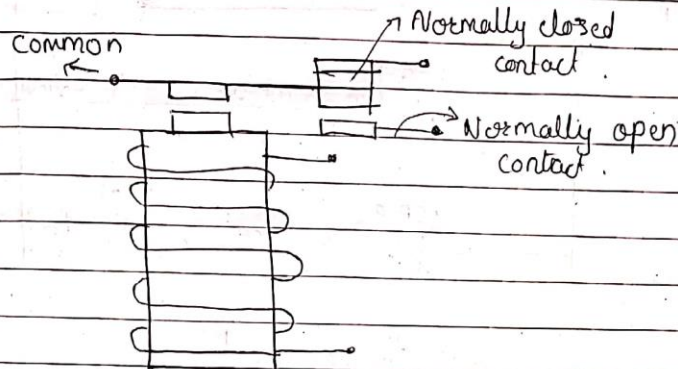 Common
Normally closed
contact.
Normally open
contact.